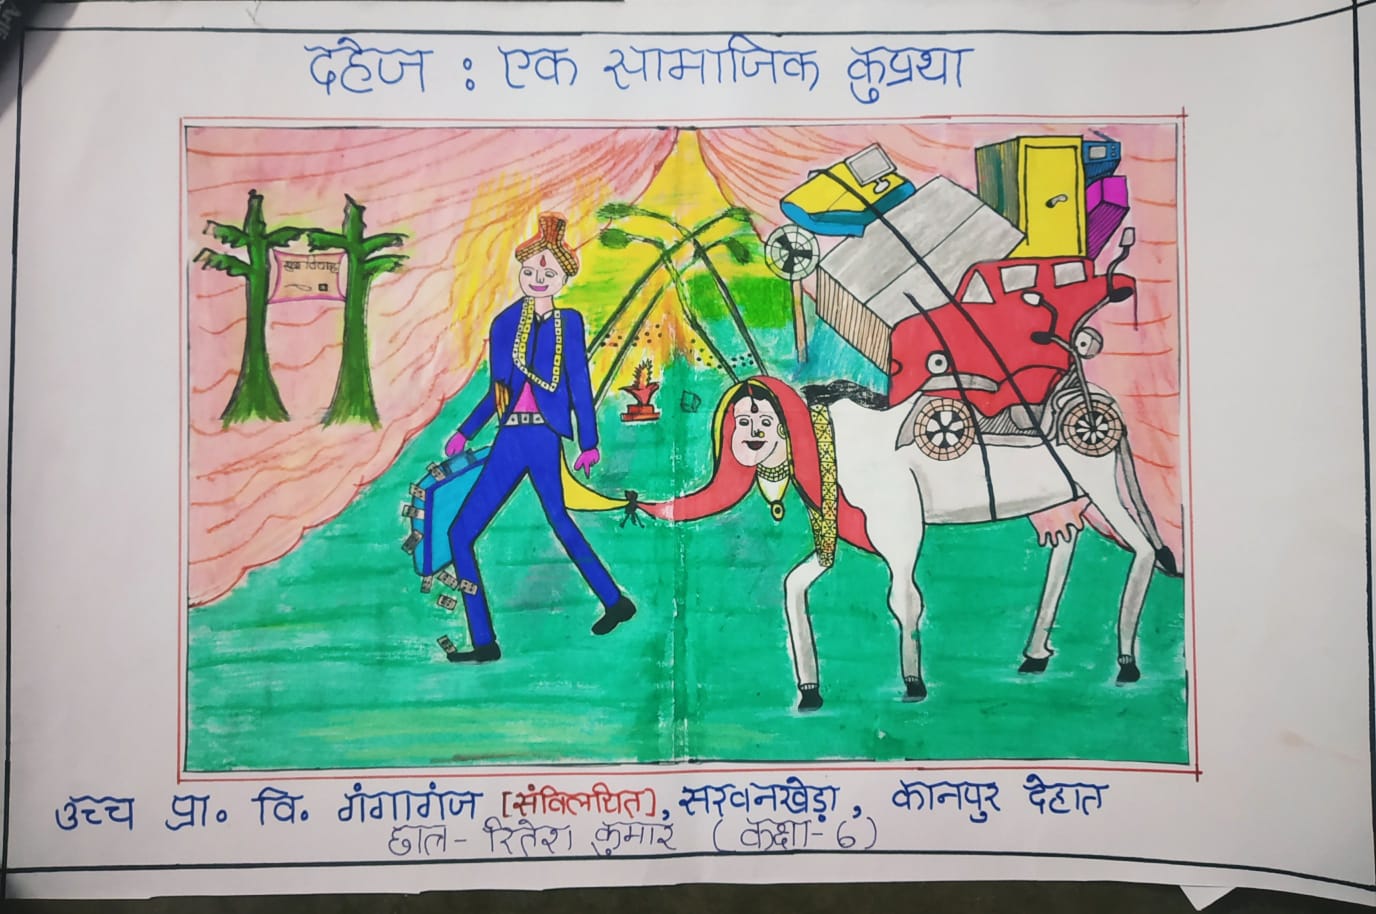 दहेज : एक सामाजिक कुप्रथा
शुभ विवाह
उच्च प्रा. वि. गंगागंज [संविलयित], सरवनखेड़ा, कानपुर देहात
छात्र - रितेश कुमार (कक्षा - 6)